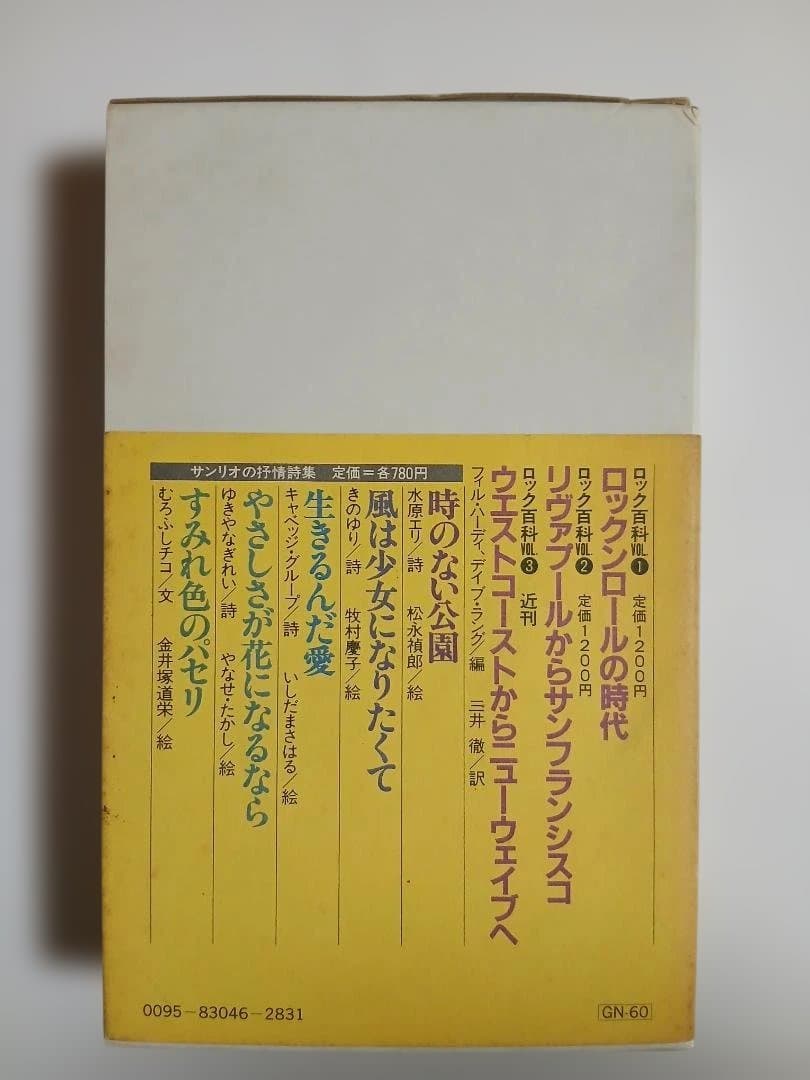 ロック百科VOL.❶ 定価1200円
ロックンロールの時代
ロック百科VOL.❷ 定価1200円
リヴァプールからサンフランシスコ
ロック百科VOL.❸ 近刊
ウエストコーストからニューウェイブへ
フィル・ハーディ、デイブ・ラング/編 三井 徹/訳
サンリオの抒情詩集 定価=各780円
時のない公園
水原エリ/詩 松永禎郎/絵
風は少女になりたくて
きのゆり/詩 牧村慶子/絵
生きるんだ愛
キャベッジ・グループ/詩 いしだまさはる/絵
やさしさが花になるなら
ゆきやなぎれい/詩 やなせ・たかし/絵
すみれ色のパセリ
むろふしチコ/文 金井塚道栄/絵
0095-83046-2831
GN-60